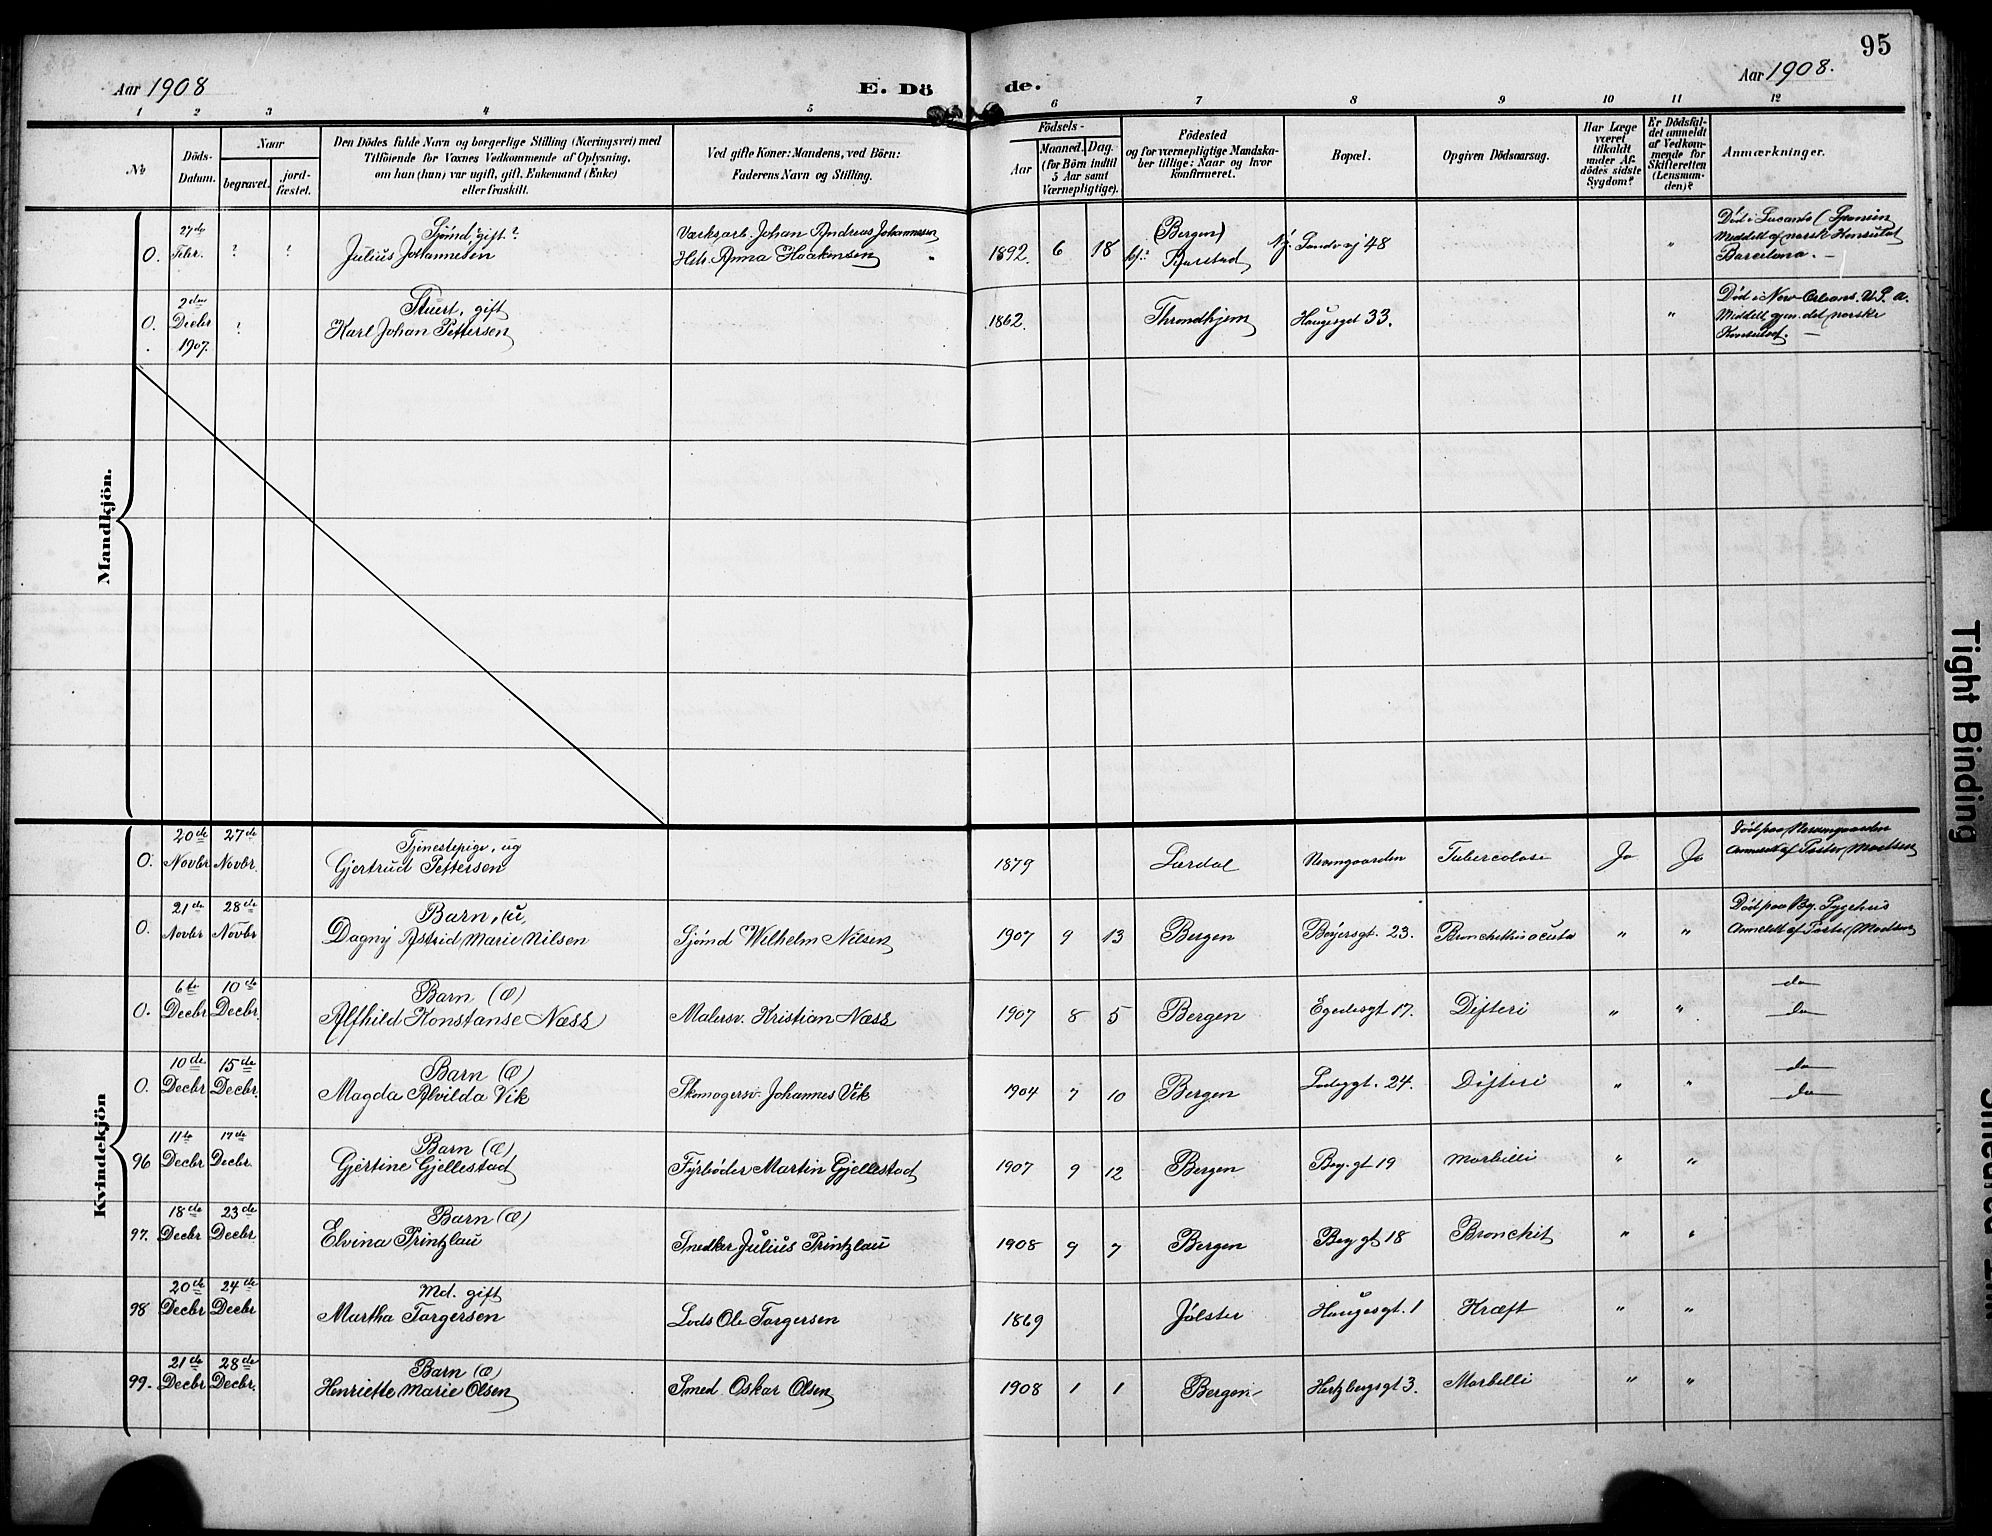 95
Aar 1908
E. Dö
de.
Aar 1908.
1 2 3 4 5 6 7 8 9 10 11 12
No
Döds-
Datum.
Naar
begravet.
jord-
fæstet.
Den Dödes fulde Navn og borgerlige Stilling (Næringsvei) med
Tilföiende for Voxnes Vedkommende af Oplysning,
om han (hun) var ugift, gift, Enkemand (Enke)
eller fraskilt.
Ved gifte Koner: Mandens, ved Börn:
Faderens Navn og Stilling.
Födsels-
Aar
Maaned. Dag.
(for Börn indtil
5 Aar samt
Værnepligtige).
Födested
og for værnepligtige Mandska-
ber tillige: Naar og hvor
konfirmeret.
Bopæl.
Opgiven Dödsaarsag.
Har Læge
været
tilkaldt
under Af-
dödes sidste
Sygdom?
Er Dödsfal-
det anmeldt
af Vedkom-
mende for
Skifteretten
(Lensman-
den)?
Anmærkninger.
Mandkjön.
27de
0. Febr. ? ?
Sjömd, gift?
Julius Johannesen
Værksarb. Johan Andreas Johannesen
Hstr. Anna Haakensen
1892. 6 18
(Bergen)
Sandvej 48
"
Meddelt af norsk Konsulat
Barcelona. —
2den
0. Decbr ?
1907.
Stuert, gift
Karl Johan Pettersen
1862.
Throndhjem
Haugesgt 33.
"
Död i New-Orleans. U.S.A.
Meddelt gjen. det norske
Konsulat. —
Kvindekjön
20de 27de
0. Novbr Novbr.
Tjenestepige, ug
Gjertrud Pettersen
1879
Lærdal
Tuberculose
Ja Ja
Anmeldt af Pastor Madsen
21de 28de
0. Novbr Novbr
Barn, u
Dagny Astrid Marie Nilsen
Sjömd Wilhelm Nilsen
1907 9 13
Bergen
Beyersgt. 23.
" "
Död paa By. Sygehus
Anmeldt af Pastor Madsen
6te 10de
0. Decbr Decbr.
Barn (æ)
Alfhild Konstanse Næss
Malersv. Kristian Næss
1907 8 5
Bergen
Egedesgt 17.
Difteri
" "
do
do
10de 15de
0. Decbr Decbr.
Barn (æ)
Magda Alvilda Vik
Skomagersv. Johannes Vik
1904 7 10
Bergen
24.
Difteri
" "
do
do
11te 17de
96 Decbr Decbr.
Barn (æ)
Gjertine Gjellestad
Fyrböder Martin Gjellestad
1907 9 12
Bergen
Bey. gt 19
Morbilli
" "
18de 23de
97. Decbr Decbr.
Barn (æ)
Elvina Printzlau
Snedker Julius Printzlau
1908 9 7
Bergen
Bey gt 18
Bronchit
" "
20de 24de
98 Decbr Decbr.
Md. gift
Martha Torgersen
Lods Ole Torgersen
1869
Jölster
Haugesgt. 1
Kræft
" "
21de 28de
99. Decbr Decbr.
Barn (æ)
Henriette Marie Olsen
Smed Oskar Olsen
1908 1 1
Bergen
Hertzbergsgt 3.
Morbilli
" "
Tight Binding